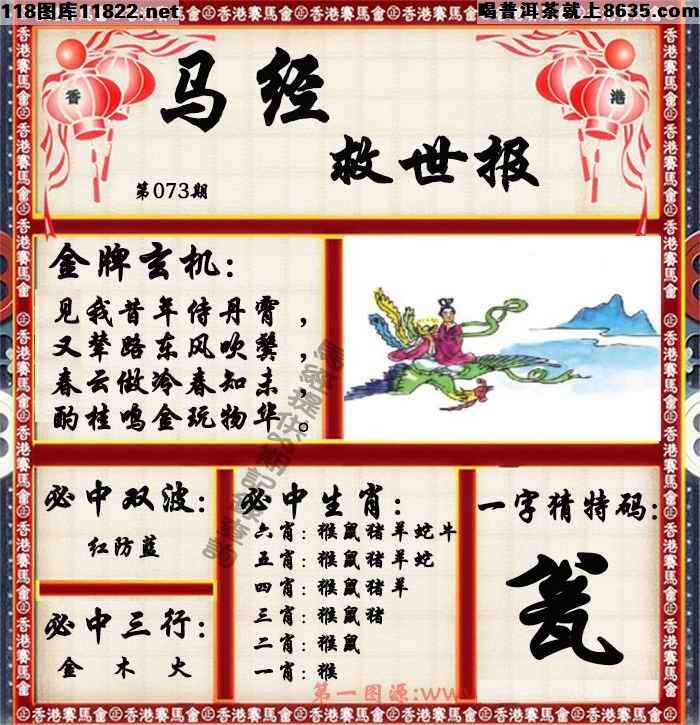 118图库11822.net
喝普洱茶就上8635.com
香
港
马经
救世报
第073期
金牌玄机:
见我昔年侍丹霄，
又辇路东风吹鬓，
春云做冷春知未，
酌桂鸣金玩物华。
必中双波:
红防蓝
必中三行:
金 木 火
必中生肖:
六肖:猴鼠猪羊蛇牛
五肖:猴鼠猪羊蛇
四肖:猴鼠猪羊
三肖:猴鼠猪
二肖:猴鼠
一肖:猴
一字猜特码:
瓮
第一图源:www
香港賽馬會